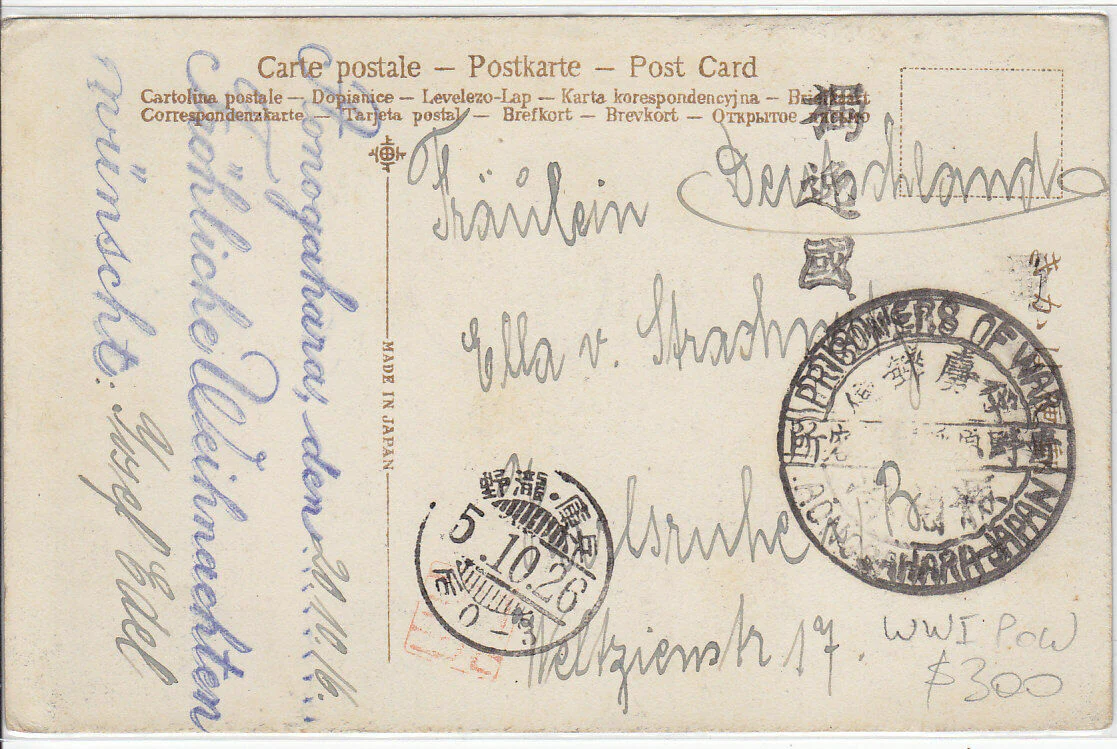 Carte postale – Postkarte – Post Card
Cartolina postale – Dopisnice – Levelezo-Lap – Karta korespondencyjna – Briefkaart
Correspondenzkarte – Tarjeta postal – Brefkort – Brevkort – Открытое письмо
Fräulein
Deutschland
Ella v.
Karlsruhe i. B.
Weltzienstr 17.
MADE IN JAPAN
Aonogahara, den 20.10.16.
Fröhliche Weihnachten
wünscht.
Josef Edel
野瀧・庫兵
5.10.26
0-3
PRISONERS OF WAR
AONOGAHARA JAPAN
WWI POW
$300